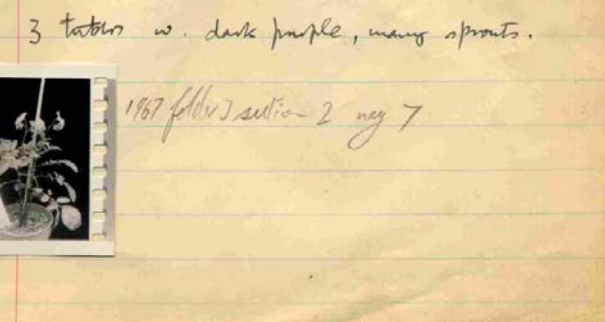 3 tubers w. dark purple, many sprouts.
1967 folder 3 section 2 neg 7